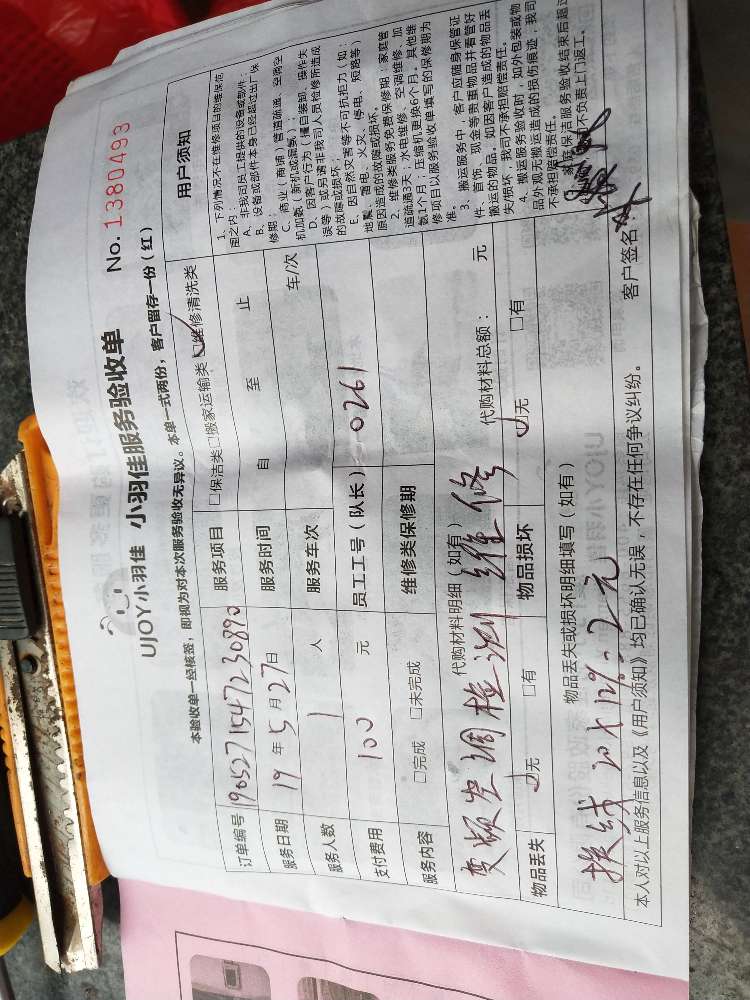 UJOY小羽佳 小羽佳服务验收单 No. 1380493
本验收单一经核签，即视为对本次服务验收无异议。本单一式两份，客户留存一份（红）
订单编号 190527154723089 服务项目 □保洁类□搬家运输类☑维修清洗类
服务日期 19年5月27日 服务时间 自 至 止
服务人数 1 人 服务车次 车/次
支付费用 100 元 员工工号（队长） 0261
服务内容 □完成 □未完成 维修类保修期
代购材料明细（如有） 代购材料总额： 元
变频空调检测维修
物品丢失 ☑无 □有 物品损坏 ☑无 □有
物品丢失或损坏明细填写（如有）
换线
本人对以上服务信息以及《用户须知》均已确认无误，不存在任何争议纠纷。
客户签名：
用户须知
1、下列情况不在维修项目的维保范
围之内：
A、非我司员工提供的设备或部件；
B、设备或部件本身已经超过出厂保
修期；
C、商业（商铺）管道疏通、空调空
机加氨（新机或漏氨）；
D、因客户行为（擅自装卸、操作失
误等）或另请非我司人员检修所造成
的故障或损坏；
E、因自然灾害等不可抗拒力（如：
地震、雷电、火灾、停电、短路等）
原因造成的故障或损坏。
2、维修类服务免费保修期：家庭管
道疏通3天、水电维修、空调维修、加
氨1个月；压缩机更换6个月，其他维
修项目以服务验收单填写的保修期为
准。
3、搬运服务中，客户应随身保管证
件、首饰、现金等贵重物品并看管好
搬运的物品。如因客户造成的物品丢
失/损坏，我司不承担赔偿责任。
4、搬运服务验收时，如外包装或物
品外观无搬运造成的损伤痕迹，我司
不承担赔偿责任。
家庭保洁服务验收结束后超过
司不负责上门返工。